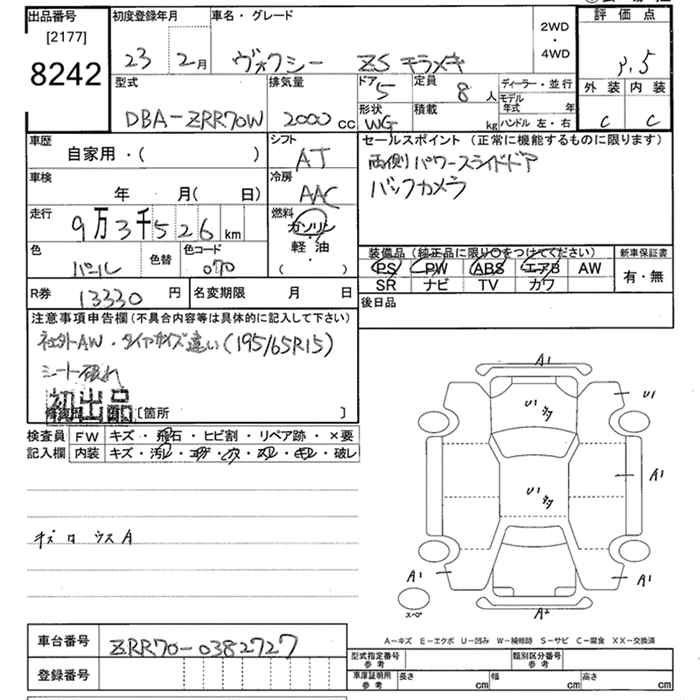 出品番号
[2177]
8242
初度登録年月
車名・グレード
23 2月
ヴォクシー ZS キラメキ
2WD
・
4WD
評価点
3.5
外装 内装
C C
型式
DBA-ZRR70W
排気量
2000 cc
ドア
5
定員
8 人
形状
WG
積載
kg
ディーラー・並行
モデル年式 年
ハンドル 左・右
車歴
自家用・( )
シフト
AT
セールスポイント (正常に機能するものに限ります)
両側パワースライドドア
バックカメラ
車検
年 月( 日)
冷房
AAC
走行
9万3千526 km
燃料
ガソリン
・
軽油
( )
色
パール
色替
色コード
070
装備品 (純正品に限り○をつけてください)
PS PW ABS エアB AW
SR ナビ TV カワ
新車保証書
有・無
R券 13330 円
名変期限 月 日
後日品
注意事項申告欄(不具合内容等は具体的に記入して下さい)
社外AW・タイヤサイズ違い(195/65R15)
シート破れ
初出品
[箇所 ]
検査員
記入欄
FW キズ・飛石・ヒビ割・リペア跡・×要
内装 キズ・汚レ・コゲ・穴・スレ・キレ・破レ
キズ ロ ウス A
A1
U1
U1
A1
U1
A1
A1
A2
スペア
A-キズ E-エクボ U-凹み W-補修跡 S-サビ C-腐食 XX-交換済
車台番号
ZRR70-0382727
登録番号
型式指定番号
参考
類別区分番号
参考
車庫証明用
参考
長さ cm
幅 cm
高さ cm